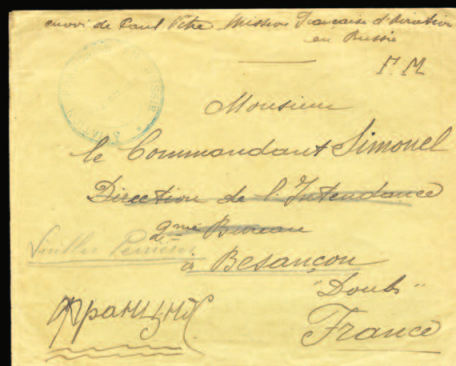 envoi de Paul Pitre Mission Française d'Aviation
en Russie
F. M
Monsieur
le Commandant Simonel
Direction de l'Intendance
9me Bureau
à Besançon
"Doubs"
Франция
France